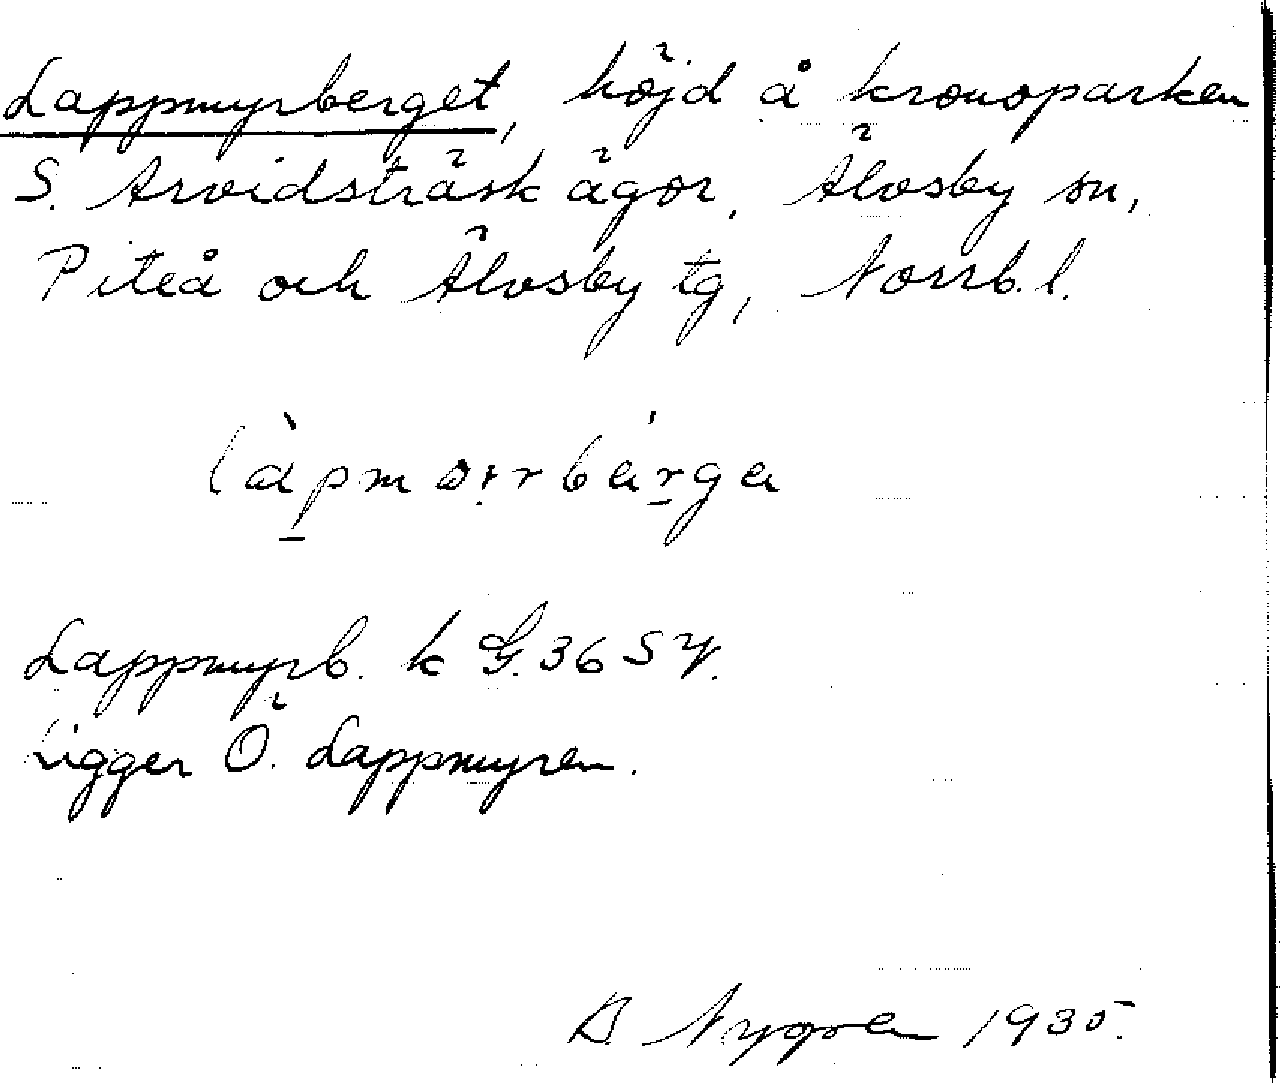 Lappmyrberget, höjd å kronoparken
S. Arvidsträsk ägor, Älvsby sn,
Piteå och Älvsby tg, Norrb. l.
Lappmyrb. k G. 36 SV.
Ligger Ö. Lappmyren.
Nygren 1935.